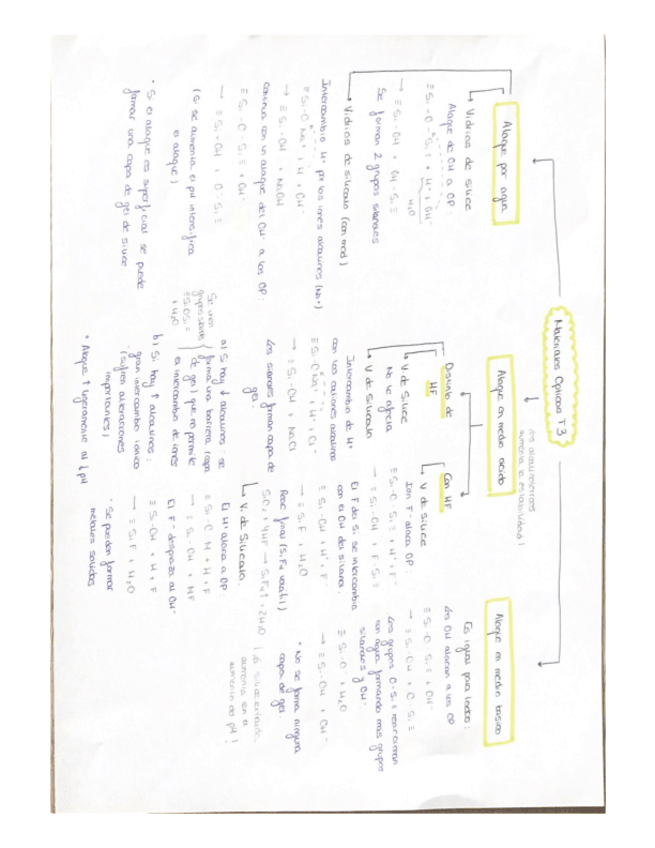 Materiales Opticos T3
Ataque por agua
→ Vidrios de sílice
Ataque de OH a OP
≡ Si - O - Si ≡ + H⁺ + OH⁻
H₂O
→ ≡ Si - OH + OH - Si ≡
Se forman 2 grupos silanoles
→ Vidrios de silicato (con mod)
Intercambio H⁺ por los iones alcalinos (Na⁺)
≡ Si - O Na⁺ + H + OH⁻
→ ≡ Si - OH + NaOH
continua con un ataque del OH⁻ a los OP:
≡ Si - O - Si ≡ + OH⁻
→ ≡ Si - OH + O⁻ Si ≡
(Si se aumenta el pH intensifica
el ataque)
* Si el ataque es superficial se puede
formar una capa de gel de silice
Los alcalinoterreos
aumenta la estabilidad!
Ataque en medio acido
Distinto de
HF
→ V. de silice
No le afecta
→ V de silicato
Intercambio de H⁺
con los cationes alcalinos
≡ Si - O Na⁺ + H⁺ + Cl⁻
→ ≡ Si - OH + NaCl
Los silanoles forman capa de
gel.
a) Si hay ↓ alcalinos: se
forma una barrera (capa
de gel) que no permite
el intercambio de iones
Se unen
grupos silanoles
≡ Si O Si ≡
+ H₂O
b) Si hay ↑ alcalinos:
gran intercambio ionico
(sufren alteraciones
importantes)
* Ataque ↑ ligeramente al ↓ pH
Con HF
→ V de silice
Ion F⁻ ataca OP:
≡ Si - O - Si ≡ + H⁺ + F⁻
→ ≡ Si - OH + F Si ≡
El F del si se intercambia
con el OH del silanol.
≡ Si - OH + H⁺ + F
→ ≡ Si F + H₂O
Reac final (SiF₄ volatil)
SiO₂ + 4HF → SiF₄↑ + 2H₂O
→ V. de Silicato.
El H⁺ ataca a OP:
≡ Si - O M + H + F
→ ≡ Si - OH + MF
El F⁻ desplaza al OH⁻
≡ Si - OH + H + F
→ ≡ Si F + H₂O
* Se pueden formar
metales solidos
Ataque en medio basico
Es igual para todos:
Los OH atacan a los OP
≡ Si - O - Si ≡ + OH⁻
→ ≡ Si - OH + O - Si ≡
Los grupos O - Si ≡ reaccionan
con agua formando mas grupos
silanoles y OH⁻
≡ Si - O + H₂O
→ ≡ Si - OH + OH⁻
* No se forma ninguna
capa de gel.
¡La silice extraida
aumenta en el
aumento de pH!